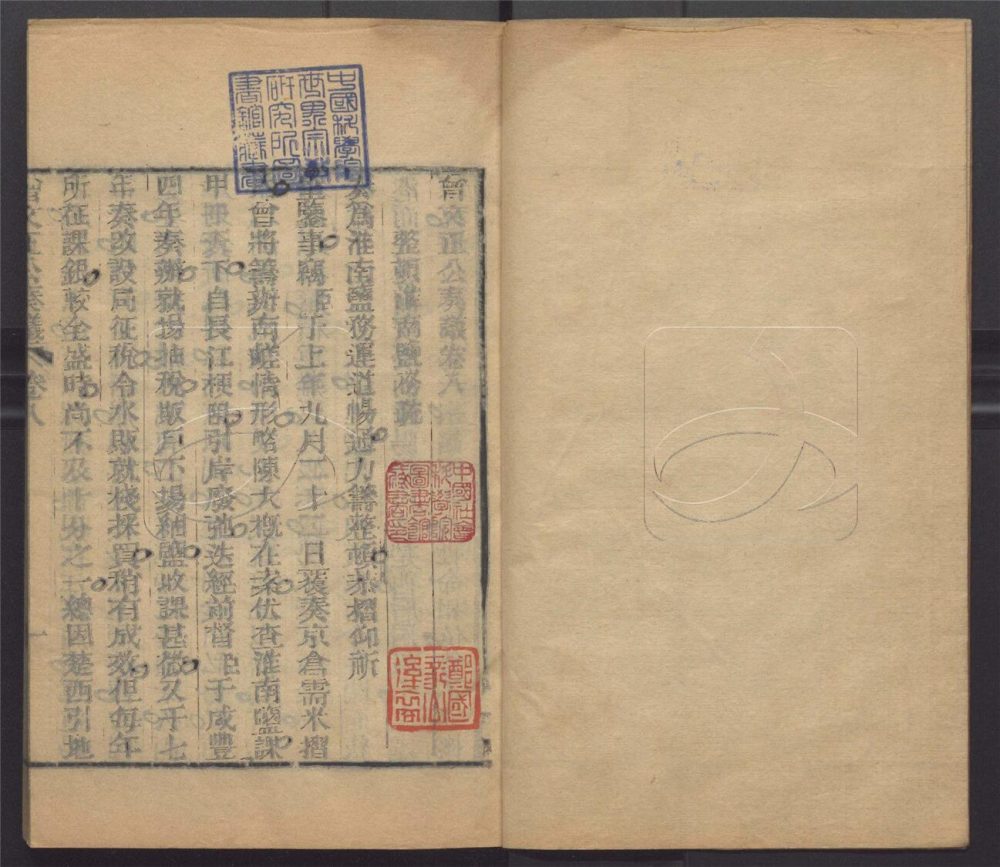 曾文正公奏議卷八
整頓淮南鹽務疏
奏為淮南鹽務運道暢通力籌整頓恭摺仰祈
聖鑒事竊臣于上年九月二十二日覆奏京倉需米摺
曾將籌辦南鹺情形略陳大概在案伏查淮南鹽課
甲冊天下自長江梗阻引岸廢弛迭經前督臣于咸豐
四年奏辦就場抽稅販戶小場細鹽收課甚微又于七
年奏改設局征稅令水販就棧採買稍有成效但每年
所征課銀較全盛時尚不及十分之一總因楚西引地
曾文正公奏議 卷八 一
中國科學院
世界宗教
研究所圖
書館藏書
中國社會
科學院
圖書館
藏書印
鄭國